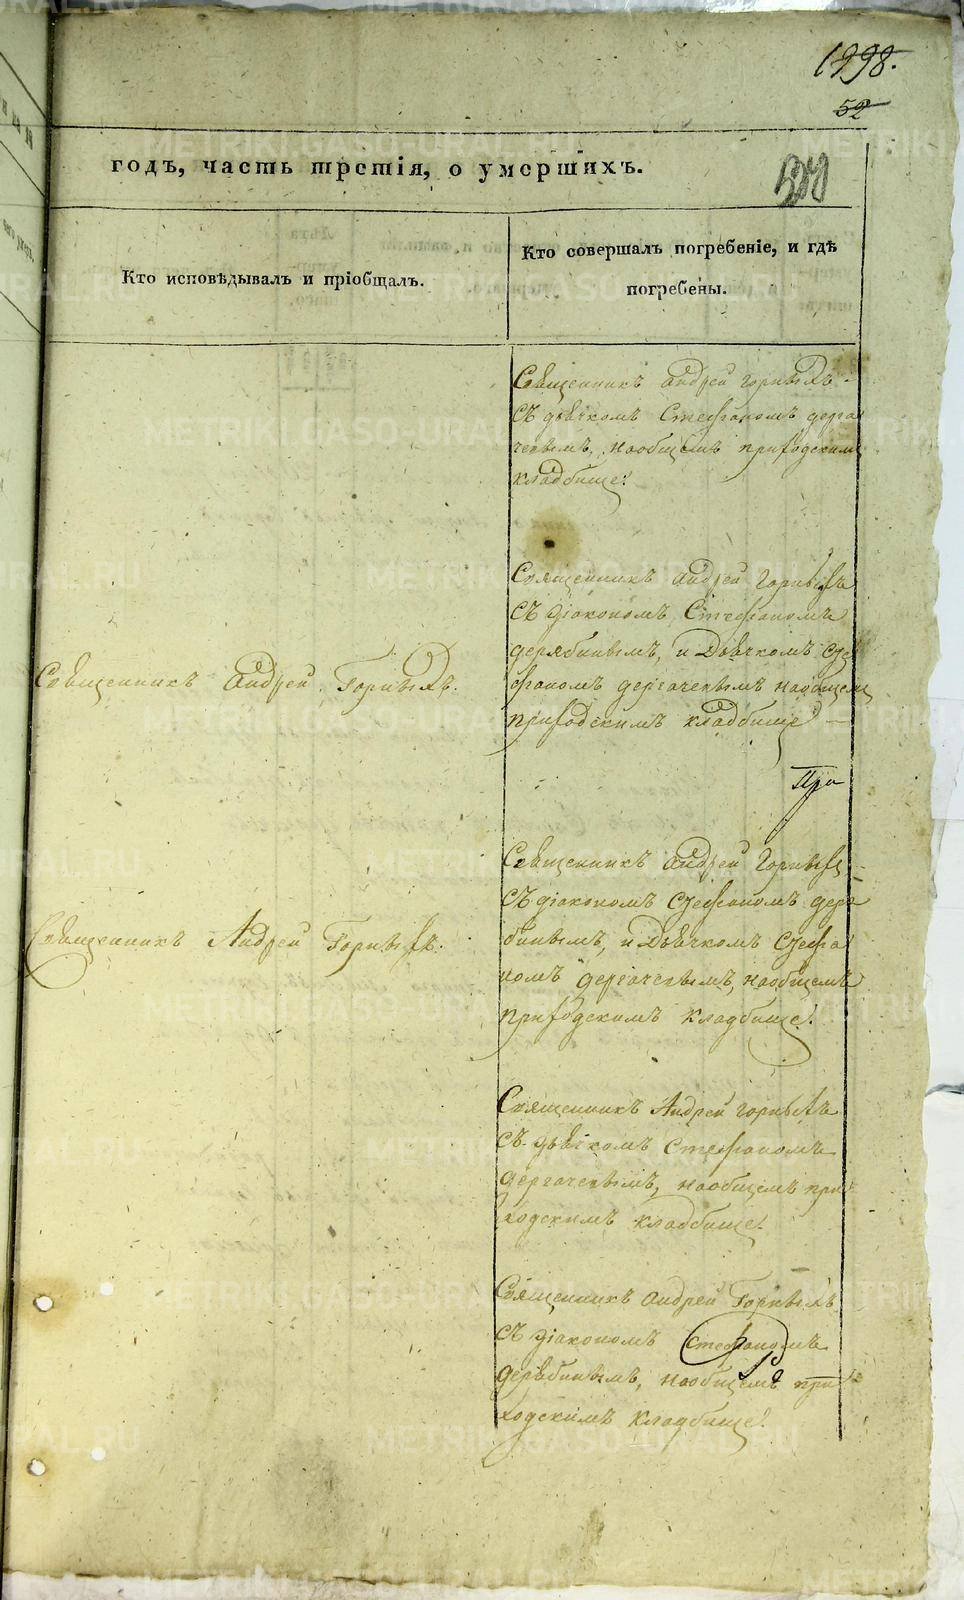 1998.
52
годъ, часть третія, о умершихъ.
Кто исповѣдывалъ и пріобщалъ.
Кто совершалъ погребеніе, и гдѣ
погребены.
Священникъ Андрей Горныхъ
съ дьячкомъ Стефаномъ Дерга
чевымъ, наобщемъ приходскимъ
кладбище.
Священникъ Андрей Горныхъ
съ діакономъ Стефаномъ
Дерябинымъ, и Дьячкомъ Сте
фаномъ Дергачевымъ наобщемъ
приходскимъ кладбище
Священникъ Андрей Горныхъ.
При
Священникъ Андрей Горныхъ
съ діакономъ Стефаномъ Деря
бинымъ, и Дьячкомъ Стефа
номъ Дергачевымъ, наобщемъ
приходскимъ кладбище.
Священникъ Андрей Горныхъ.
Священникъ Андрей Горныхъ
съ дьячкомъ Стефаномъ
Дергачевымъ, наобщемъ при
ходскимъ кладбище.
Священникъ Андрей Горныхъ
съ діакономъ Стефаномъ
Дерябинымъ, наобщемъ при
ходскимъ кладбище.
METRIKI.GASO-URAL.RU